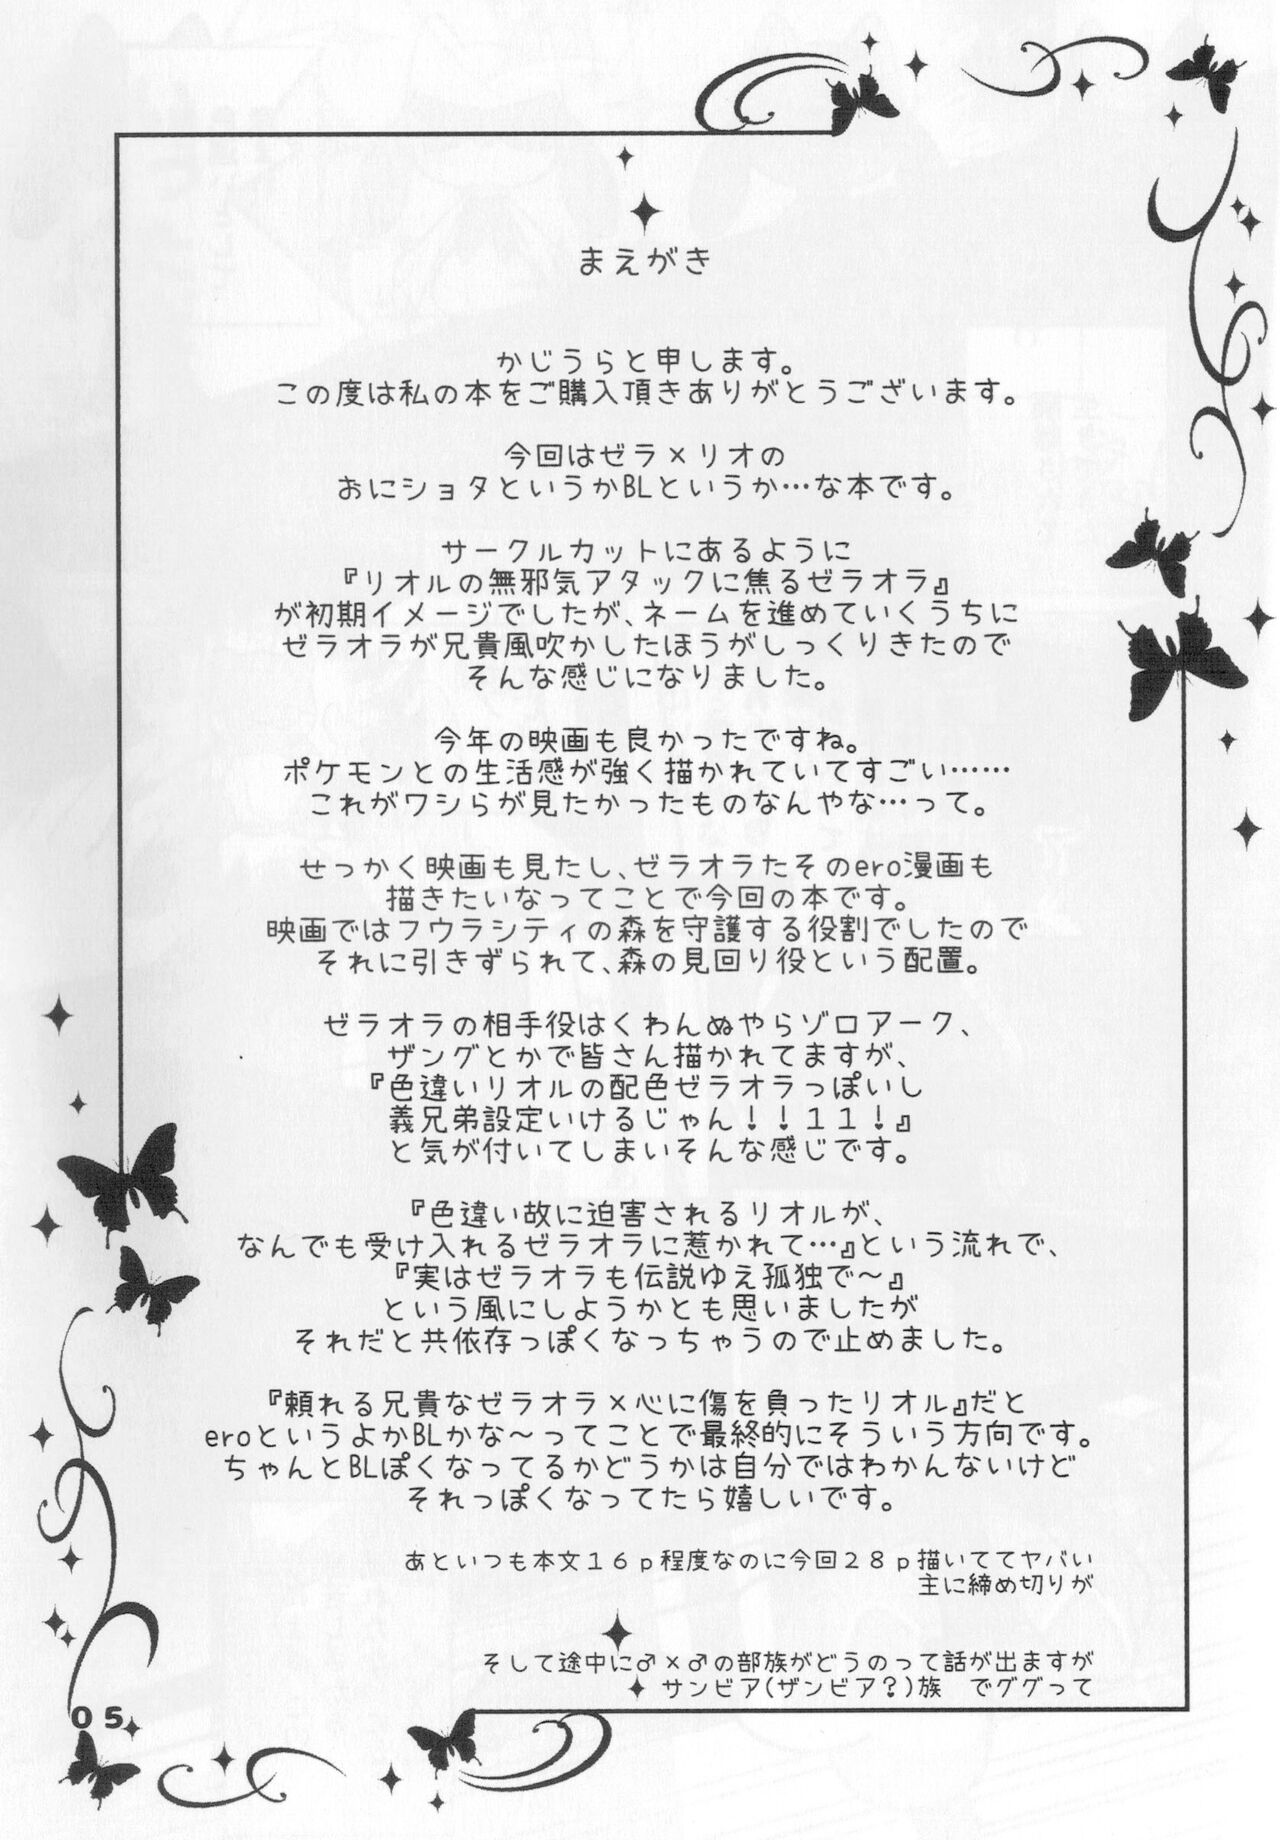 まえがき
かじうらと申します。
この度は私の本をご購入頂きありがとうございます。
今回はゼラ×リオの
おにショタというかBLというか…な本です。
サークルカットにあるように
『リオルの無邪気アタックに焦るゼラオラ』
が初期イメージでしたが、ネームを進めていくうちに
ゼラオラが兄貴風吹かしたほうがしっくりきたので
そんな感じになりました。
今年の映画も良かったですね。
ポケモンとの生活感が強く描かれていてすごい……
これがワシらが見たかったものなんやな…って。
せっかく映画も見たし、ゼラオラたそのero漫画も
描きたいなってことで今回の本です。
映画ではフウラシティの森を守護する役割でしたので
それに引きずられて、森の見回り役という配置。
ゼラオラの相手役はくわんぬやらゾロアーク、
ザングとかで皆さん描かれてますが、
『色違いリオルの配色ゼラオラっぽいし
義兄弟設定いけるじゃん！！１１！』
と気が付いてしまいそんな感じです。
『色違い故に迫害されるリオルが、
なんでも受け入れるゼラオラに惹かれて…』という流れで、
『実はゼラオラも伝説ゆえ孤独で～』
という風にしようかとも思いましたが
それだと共依存っぽくなっちゃうので止めました。
『頼れる兄貴なゼラオラ×心に傷を負ったリオル』だと
eroというよかBLかな～ってことで最終的にそういう方向です。
ちゃんとBLぽくなってるかどうかは自分ではわかんないけど
それっぽくなってたら嬉しいです。
あといつも本文１６ｐ程度なのに今回２８ｐ描いててヤバい
主に締め切りが
そして途中に♂×♂の部族がどうのって話が出ますが
サンビア(ザンビア？)族　でググって
05